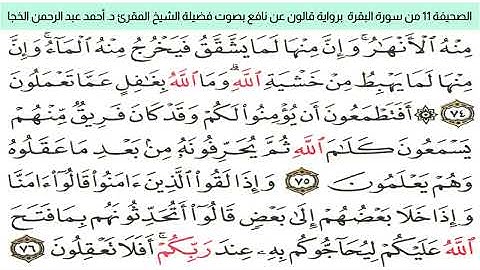 الصحيفة 11 من سورة البقرة برواية قالون عن نافع بصوت فضيلة الشيخ المقرئ د. أحمد عبد الرحمن الخجا
مِنْهُ اُلْأَنْهَٰرُ وَإِنَّ مِنْهَا لَمَا يَشَّقَّقُ فَيَخْرُجُ مِنْهُ اُلْمَآءُ وَإِنَّ
مِنْهَا لَمَا يَهْبِطُ مِنْ خَشْيَةِ اِللَّهِ وَمَا اَللَّهُ بِغَٰفِلٍ عَمَّا تَعْمَلُونَ
٧٤ ۞ أَفَتَطْمَعُونَ أَنْ يُؤْمِنُواْ لَكُمْ وَقَدْ كَانَ فَرِيقٌ مِّنْهُمْ
يَسْمَعُونَ كَلَٰمَ اَللَّهِ ثُمَّ يُحَرِّفُونَهُۥ مِنۢ بَعْدِ مَا عَقَلُوهُ
وَهُمْ يَعْلَمُونَ ٧٥ وَإِذَا لَقُواْ اُلَّذِينَ ءَامَنُواْ قَالُواْ ءَامَنَّا
وَإِذَا خَلَا بَعْضُهُمْ إِلَىٰ بَعْضٍ قَالُواْ أَتُحَدِّثُونَهُم بِمَا فَتَحَ
اَللَّهُ عَلَيْكُمْ لِيُحَآجُّوكُم بِهِۦ عِندَ رَبِّكُمْ أَفَلَا تَعْقِلُونَ ٧٦